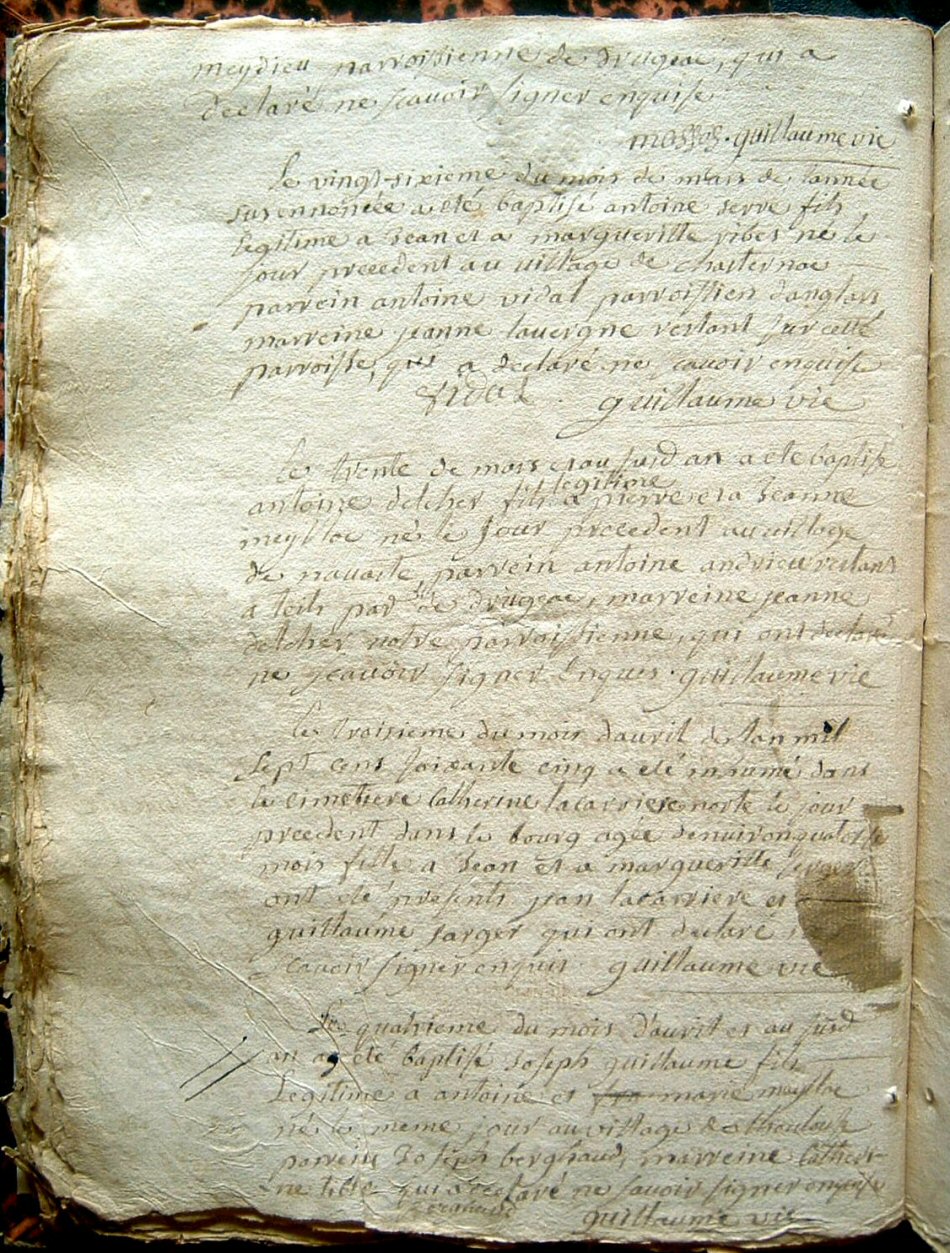 meydieu parroissienne de drugeac, qui a
declaré ne scavoir signer enquise
guillaume vie
Le vingt-sixieme du mois de mars de l'année
susennoncée a eté baptisé antoine serre fils
legitime a Jean et a margueritte ribes né le
Jour precedent au village de
parrein antoine vidal parroissien d'anglars
marreine jeanne lavergne restant sur cette
parroisse, qui a declaré ne scavoir enquise
vidal guillaume vie
Le trente de mars et au susd an a eté baptisé
legitime
antoine delcher fils a pierre et a Jeanne
meyllac né le Jour precedent au village
de navaste, parrein antoine andrieu restant
a teils par de drugeac, marreine jeanne
delcher notre parroissienne, qui ont declaré
ne scavoir signer enquis. guillaume vie
Le troisieme du mois d'avril de l'an mil
sept cens soixante cinq a eté inhumé dans
le cimetiere Catherine lacarriere morte le jour
precedent dans le bourg agée denviron quatorse
mois fille a Jean et a margueritte
ont eté presents jean lacarriere et
guillaume sarger qui ont declaré
scavoir signer enquis. guillaume vie
Le quatrieme du mois d'avril et au susd
an a eté baptisé Joseph guillaume fils
Legitime a antoine et marie meyllac
né le meme jour au village de
parrein Joseph bergheaud, marreine Catheri-
ne qui a declaré ne savoir signer enquise
guillaume vie